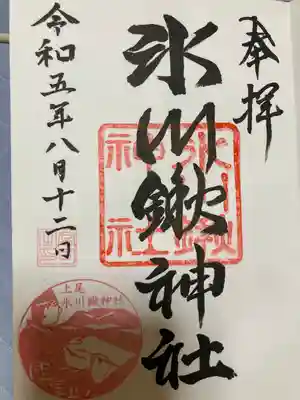 奉拝
氷川鍬神社
氷川鍬神社
令和五年八月十二日
上尾
氷川鍬神社